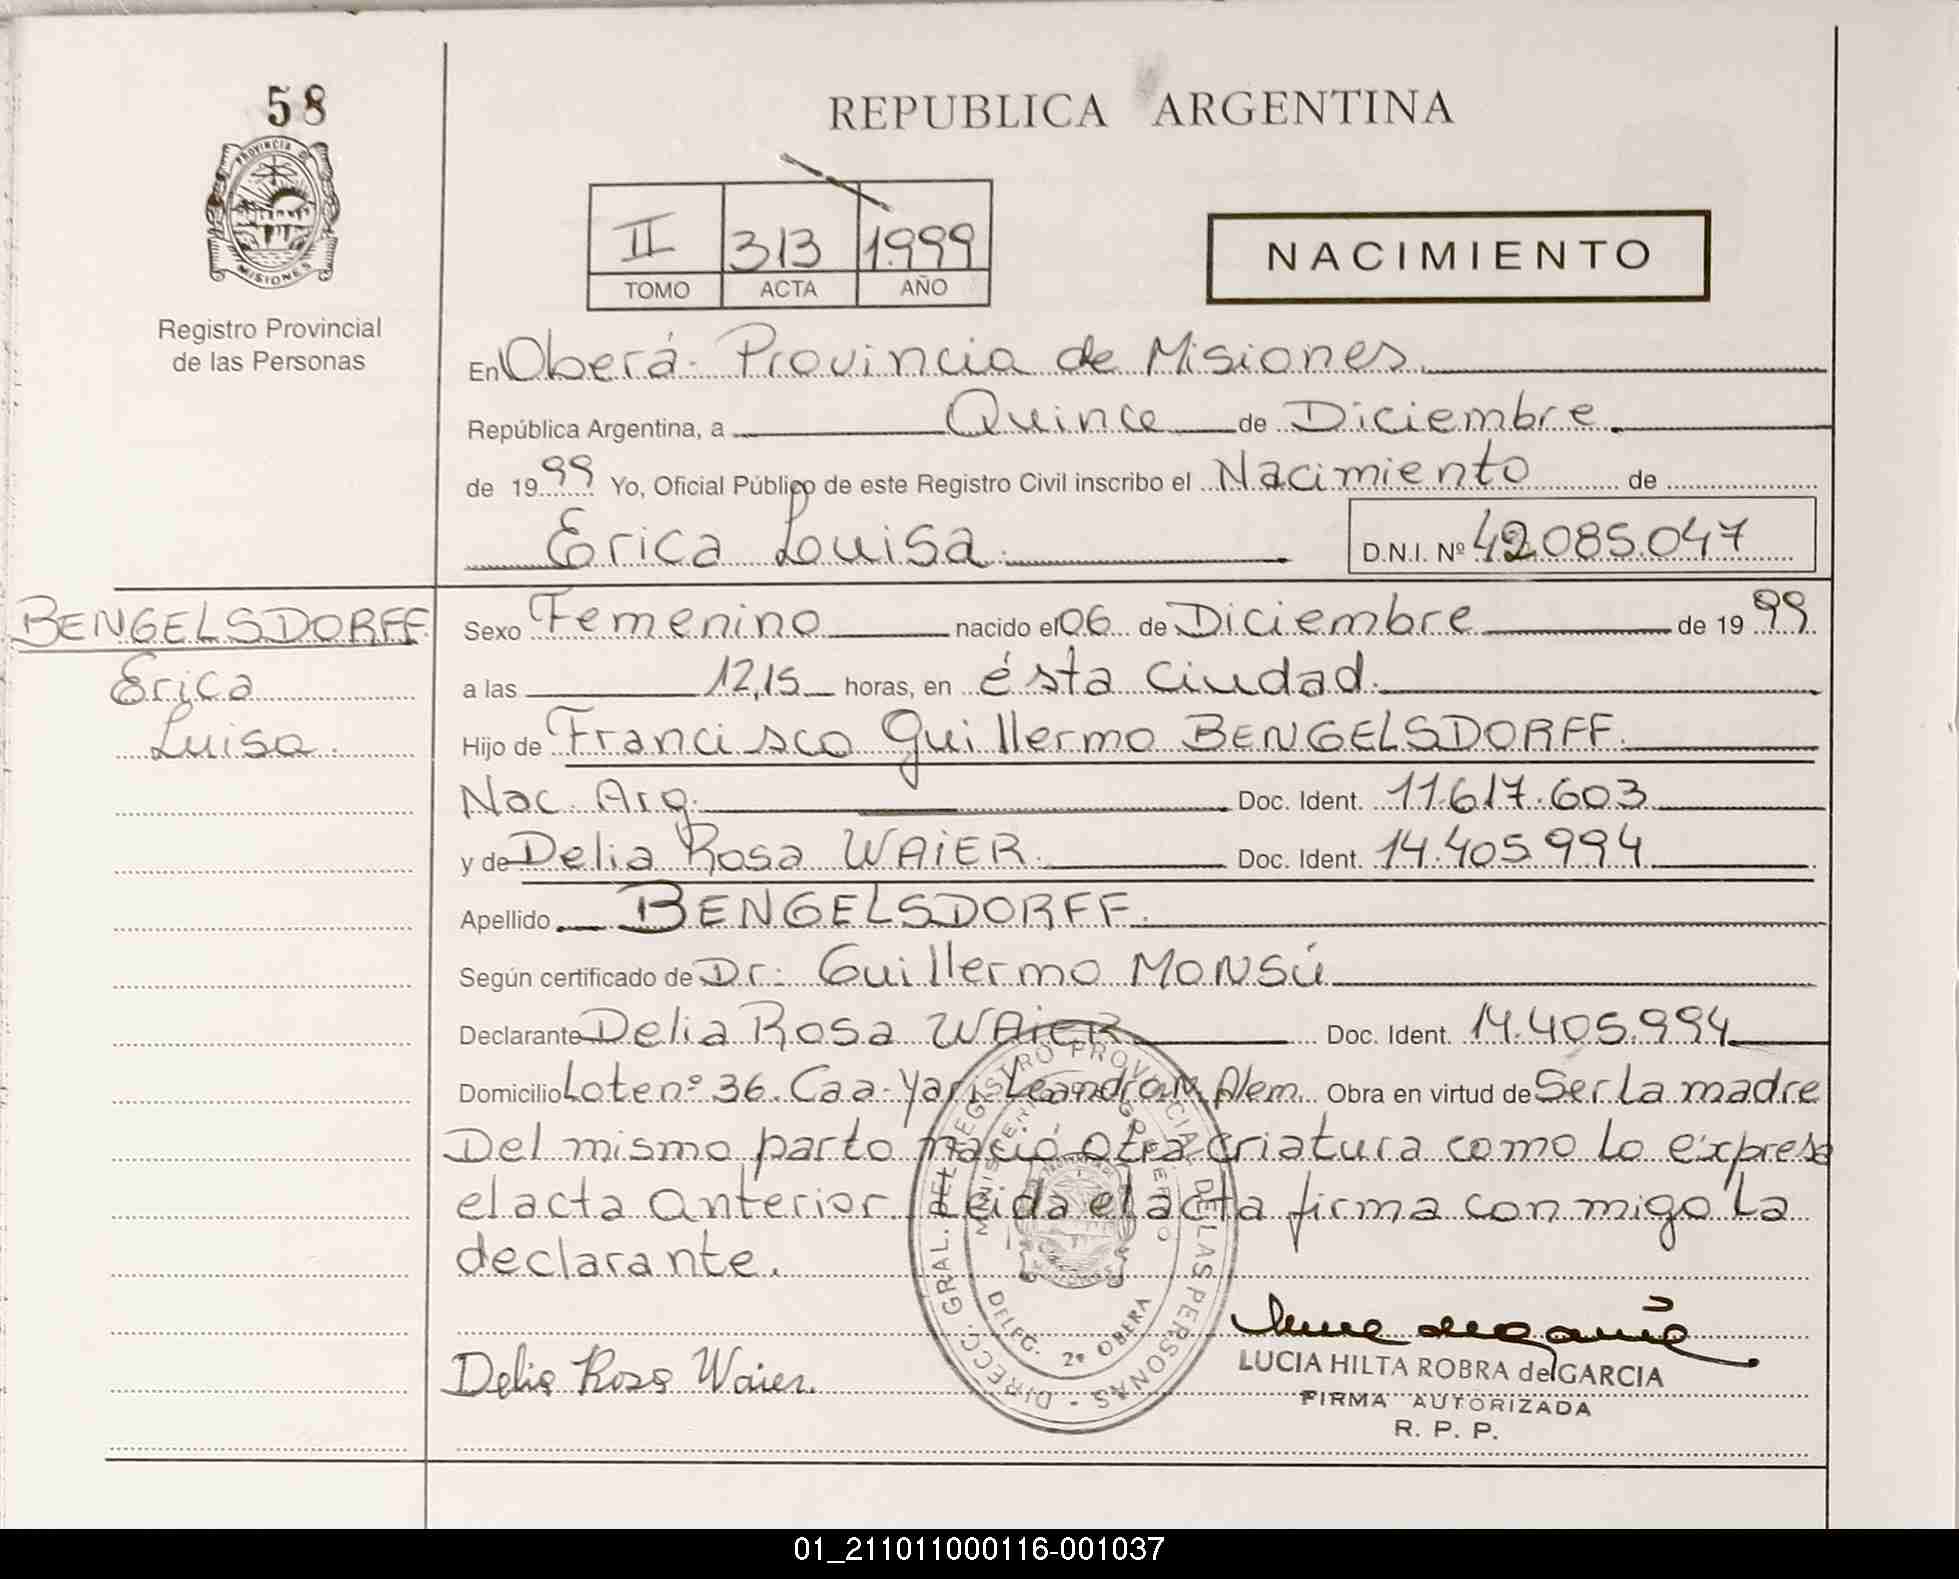 58
PROVINCIA DE
MISIONES
Registro Provincial
de las Personas
REPUBLICA ARGENTINA
II 313 1.999
TOMO ACTA AÑO
NACIMIENTO
En Oberá. Provincia de Misiones.
República Argentina, a Quince de Diciembre.
de 1999 Yo, Oficial Público de este Registro Civil inscribo el Nacimiento de
Erica Louisa. D.N.I. Nº 42.085.047
BENGELSDORFF
Erica
Luisa.
Sexo Femenino nacido el 06 de Diciembre de 1999
a las 12,15 horas, en ésta ciudad.
Hijo de Francisco Guillermo BENGELSDORFF.
Nac. Arg. Doc. Ident. 11.617.603
y de Delia Rosa WAiER. Doc. Ident. 14.405.994
Apellido BENGELSDORFF.
Según certificado de Dr. Guillermo MONSÚ
Declarante Delia Rosa WAiER Doc. Ident. 14.405.994
Domicilio Lote nº 36. Caa-Yari. Leandro N. Alem. Obra en virtud de Ser La madre
Del mismo parto nació otra criatura como lo expresa
el acta anterior. Leida el acta firma conmigo La
declarante.
DIRECC. GRAL. DEL REGISTRO PROVINCIAL DE LAS PERSONAS
DELEG. 2ª OBERA
Delia Rosa Waier.
LUCIA HILTA ROBRA de GARCIA
FIRMA AUTORIZADA
R. P. P.
01_211011000116-001037